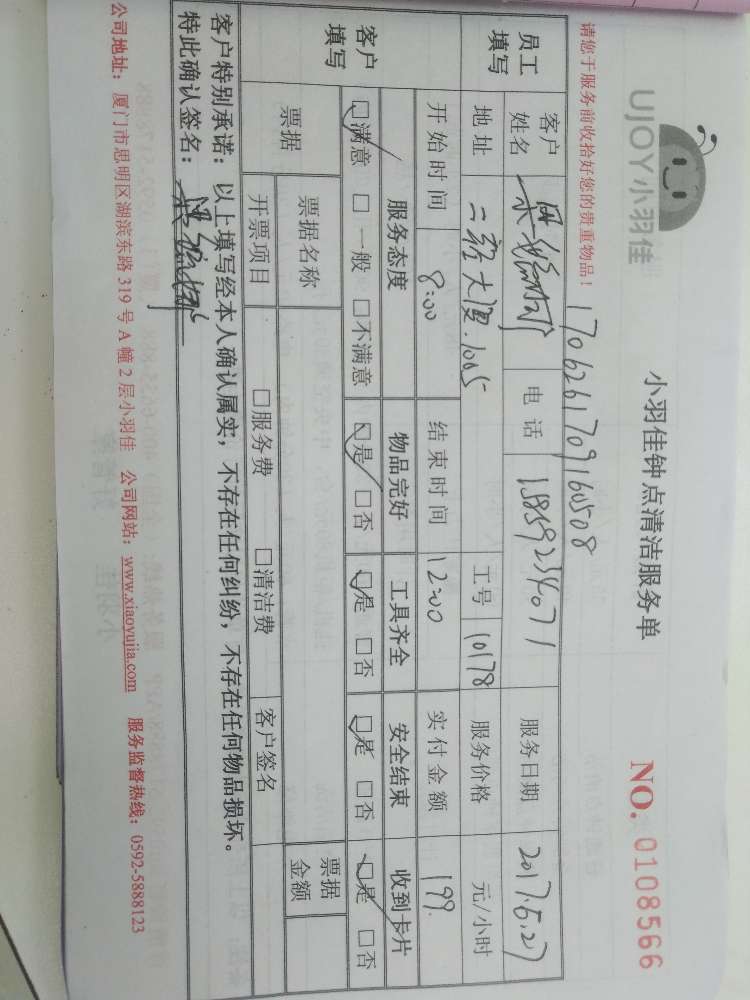 UJOY小羽佳
小羽佳钟点清洁服务单
NO. 0108566
请您于服务前收拾好您的贵重物品！
1706261709160508
员工填写
客户姓名 电话 15859234071 服务日期 2017.6.27
地址 大厦.1005 工号 10178 服务价格 元/小时
开始时间 8:00 结束时间 12:00 实付金额 199.
客户填写
服务态度 物品完好 工具齐全 安全结束 收到卡片
☑满意 □一般 □不满意 ☑是 □否 ☑是 □否 ☑是 □否 ☑是 □否
票据 票据名称 票据金额
开票项目 □服务费 □清洁费 客户签名
客户特别承诺：以上填写经本人确认属实，不存在任何纠纷，不存在任何物品损坏。
特此确认签名：
公司地址：厦门市思明区湖滨东路 319 号 A 幢 2 层小羽佳 公司网站：www.xiaoyujia.com 服务监督热线：0592-5888123